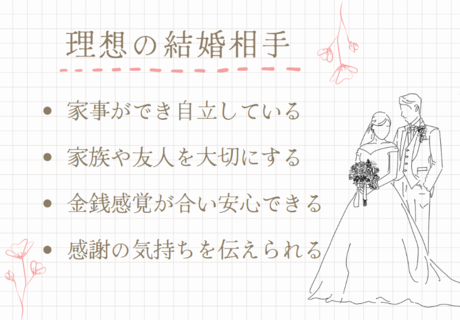 理想の結婚相手
・家事ができ自立している
・家族や友人を大切にする
・金銭感覚が合い安心できる
・感謝の気持ちを伝えられる